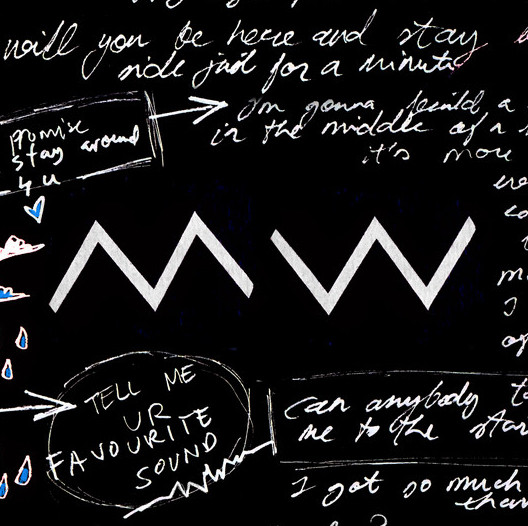 will you be here and stay
side just for a minute
promise
stay around
4 u
I'm gonna build a
in the middle of a
it's more
TELL ME
UR
FAVOURITE
SOUND
MW
can anybody
me to the star
I got so much
than